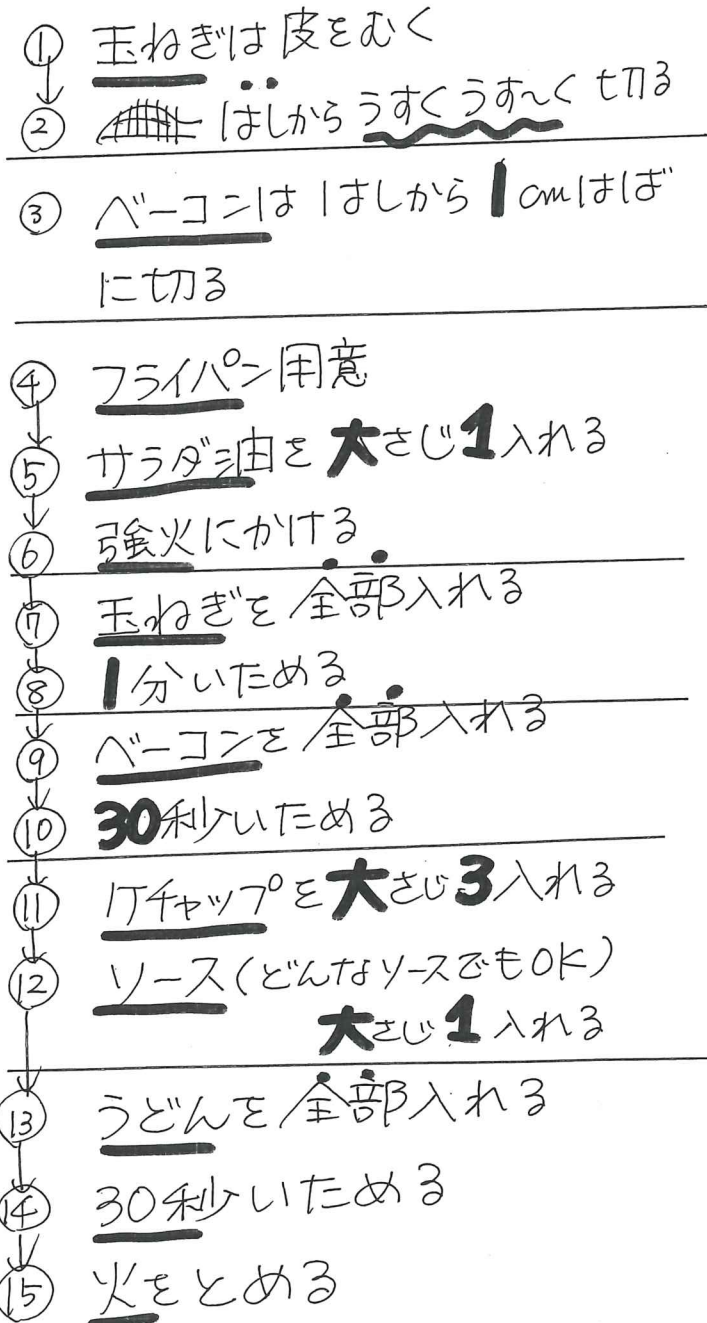 ① 玉ねぎは皮をむく
② はしからうすくうす〜く切る
③ ベーコンははしから1cmはば
に切る
④ フライパン用意
⑤ サラダ油を大さじ1入れる
⑥ 強火にかける
⑦ 玉ねぎを全部入れる
⑧ 1分いためる
⑨ ベーコンを全部入れる
⑩ 30秒いためる
⑪ ケチャップを大さじ3入れる
⑫ ソース(どんなソースでもOK)
大さじ1入れる
⑬ うどんを全部入れる
⑭ 30秒いためる
⑮ 火をとめる